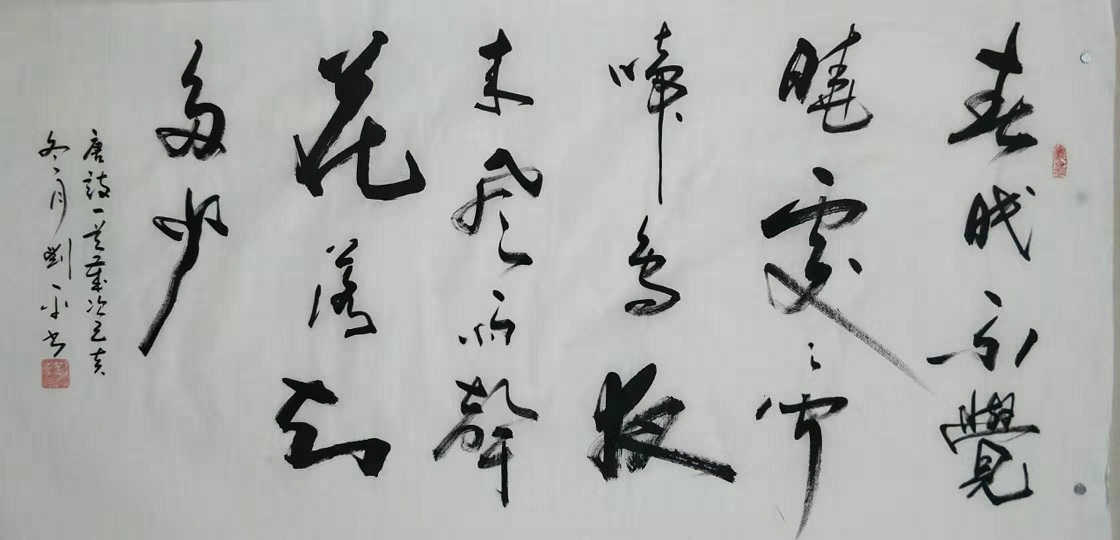 春眠不覺
曉處〻聞
啼鳥夜
来風雨聲
花落知
多少
唐詩一首歲次己亥
冬月劉平书